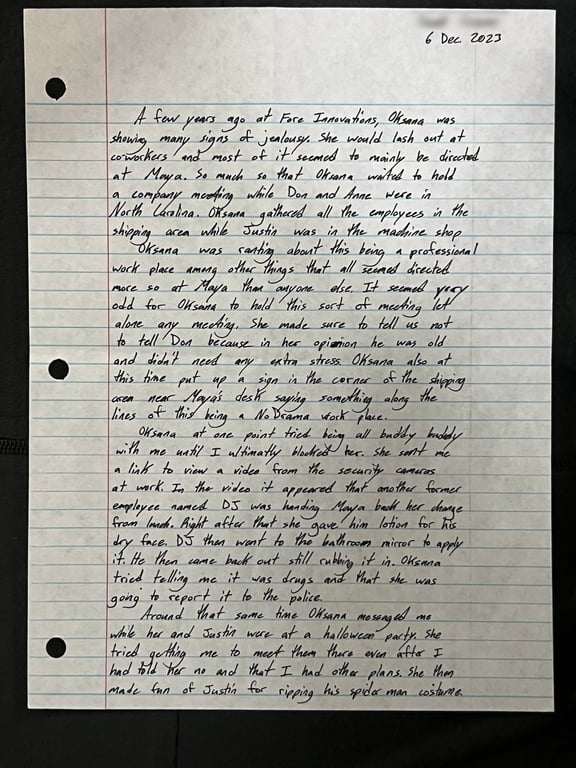 6 Dec. 2023
A few years ago at Fore Innovations, Oksana was
showing many signs of jealousy. She would lash out at
coworkers and most of it seemed to mainly be directed
at Maya. So much so that Oksana waited to hold
a company meeting while Don and Anne were in
North Carolina. Oksana gathered all the employees in the
shipping area while Justin was in the machine shop
Oksana was ranting about this being a professional
work place among other things that all seemed directed
more so at Maya than anyone else. It seemed very
odd for Oksana to hold this sort of meeting let
alone any meeting. She made sure to tell us not
to tell Don because in her opinion he was old
and didn't need any extra stress. Oksana also at
this time put up a sign in the corner of the shipping
area near Maya's desk saying something along the
lines of this being a No Drama work place.
Oksana at one point tried being all buddy buddy
with me until I ultimatly blocked her. She sent me
a link to view a video from the security cameras
at work. In the video it appeared that another former
employee named DJ was handing Maya back her change
from lunch. Right after that she gave him lotion for his
dry face. DJ then went to the bathroom mirror to apply
it. He then came back out still rubbing it in. Oksana
tried telling me it was drugs and that she was
going to report it to the police.
Around that same time Oksana messaged me
while her and Justin were at a halloween party. She
tried getting me to meet them there even after I
had told her no and that I had other plans. She then
made fun of Justin for ripping his spider man costume.